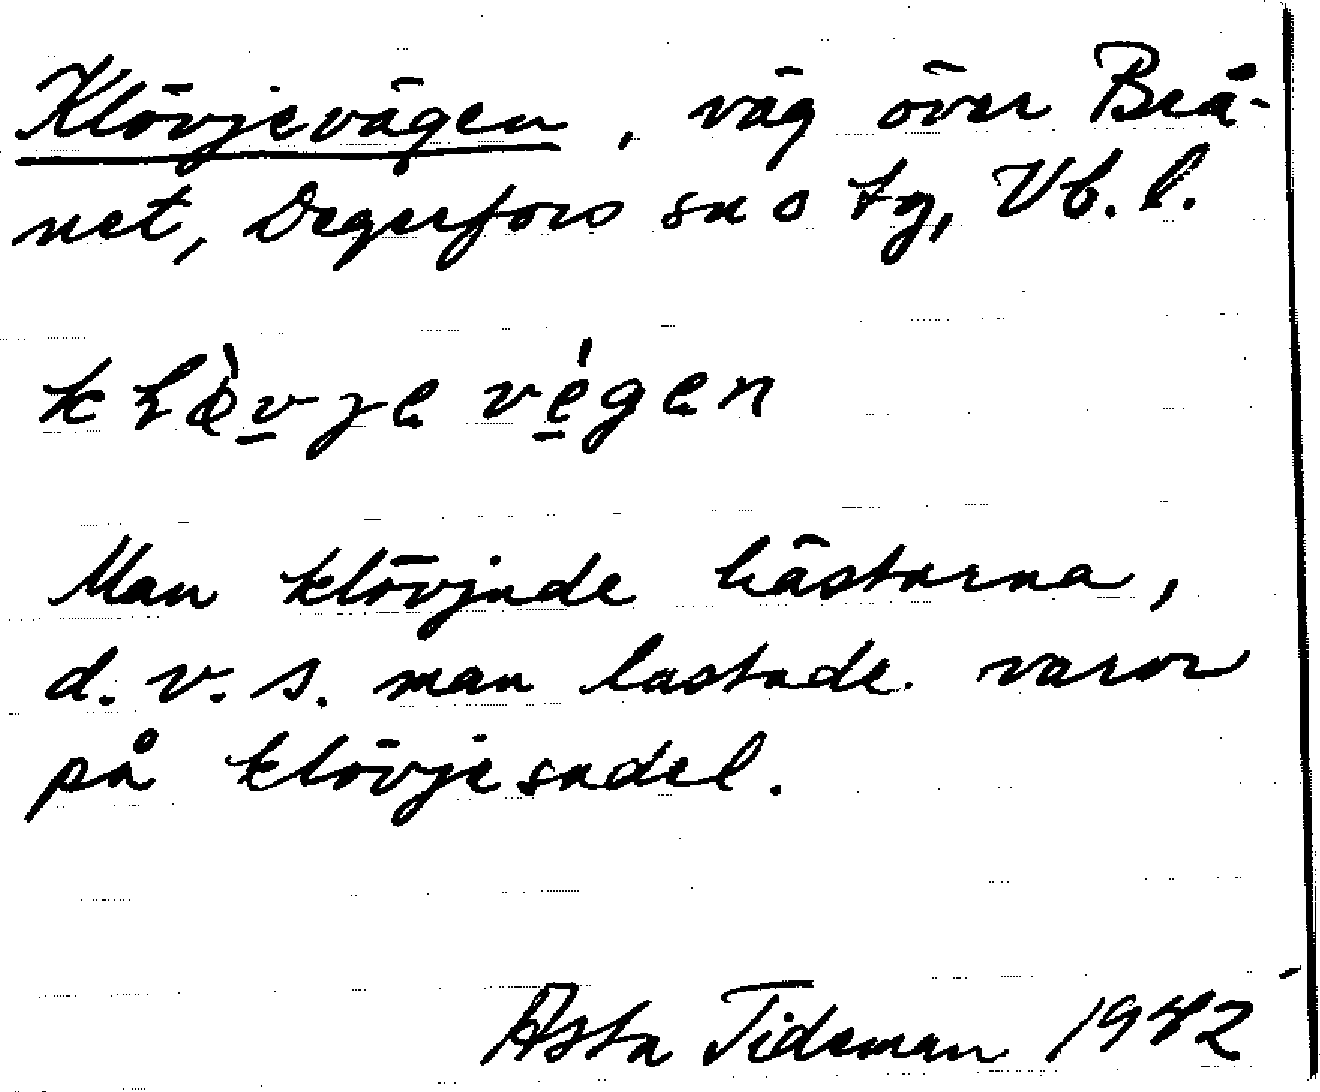 Klövjevägen, väg över Brå-
net, Degerfors sn o tg, Vb. l.
Man klövjade hästarna,
d. v. s. man lastade varor
på klövjesadel.
Asta Tideman 1942